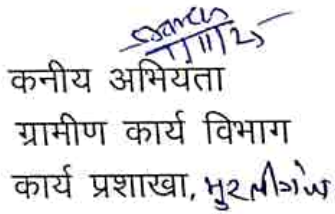 1/11/25
कनीय अभियता
ग्रामीण कार्य विभाग
कार्य प्रशाखा, मुरलीगंज